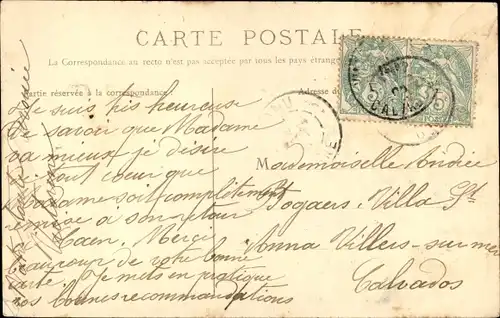 CARTE POSTALE
La Correspondance au recto n'est pas acceptée par tous les pays étrang
Partie réservée à la correspondance
Adresse d
Je suis très heureuse
de savoir que Madame
va mieux je désire
tout cœur que
Madame soit complètement
remise a son retour
Caen. Merci
beaucoup de votre bonne
carte. Je mets en pratique
vos bonnes recommandations
Mademoiselle Andrée
Villa Ste
Anna Villers-sur-mer
Calvados